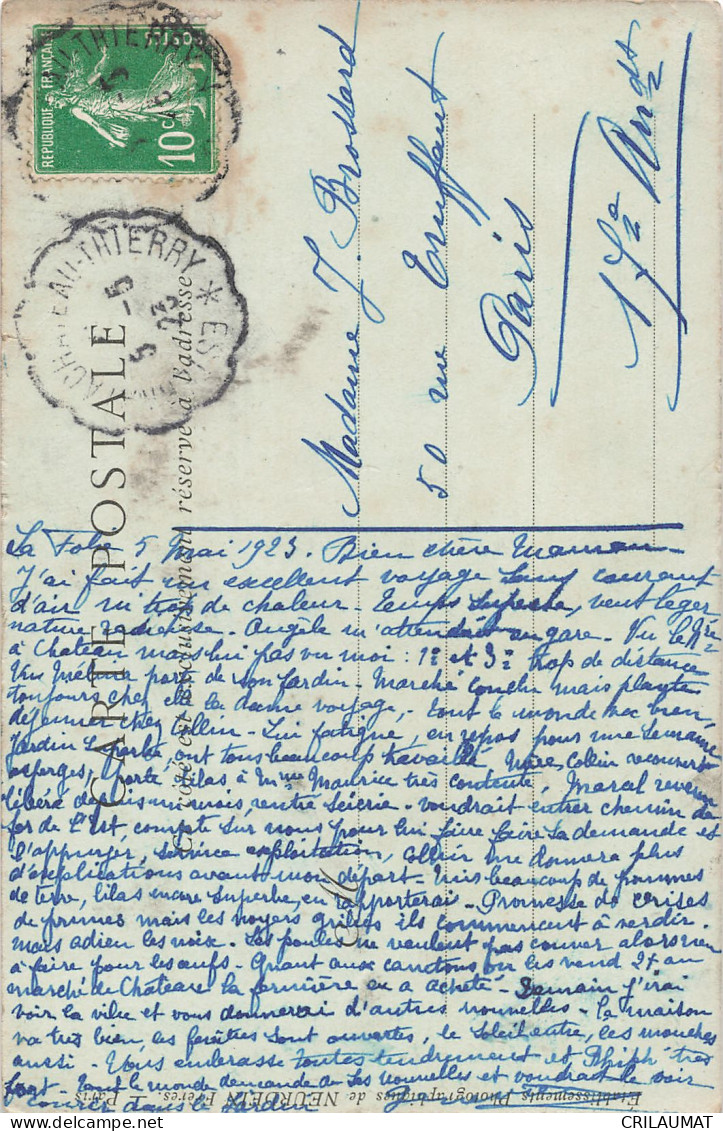 RÉPUBLIQUE FRANÇAISE
10c
CHÂTEAU-THIERRY * ES
5 - 5
23
CARTE POSTALE
Ce côté est exclusivement réservé à l'adresse
Madame J. Brossard
50 rue Truffaut
Paris
17e Arrdt
5 Mai 1923. Bien chère Maman
J'ai fait un excellent voyage sans courant
d'air ni trop de chaleur. Temps superbe, vent léger
nature radieuse. Angèle m'attendait au gare. Vu
à Château mais lui pas vu moi : 1e et 3e trop de distance
toujours chez la dame voyage, tout le monde
déjeuner chez Collin. Lui fatigué, en repos pour une semaine
jardin superbe, ont tous beaucoup travaillé
asperges, porté lilas à Mme Maurice très contente, Marcel revenu
libéré depuis un mois, rentre Scierie. voudrait entrer chemin de
fer de l'Est, compte sur nous pour lui faire faire sa demande et
l'appuyer, service exploitation, Collin me donnera plus
d'explications avant mon départ. beaucoup de pommes
de terre, lilas encore superbe, en rapporterai. Promesse de cerises
de prunes mais les noyers grillés ils commencent à verdir.
mais adieu les noix. Les poules ne veulent pas couver alors rien
à faire pour les œufs. Quant aux canetons on les vend au
marché de Château la fermière en a acheté. Demain j'irai
voir la ville et vous donnerai d'autres nouvelles. la maison
va très bien, les fenêtres sont ouvertes, le soleil entre, les mouches
aussi. Vous embrasse toutes tendrement et très
fort. Tout le monde demande de ses nouvelles et voudrait le voir
courir dans le jardin
Établissements Photographiques de NEURDEIN Frères. - Paris
CRILAUMAT